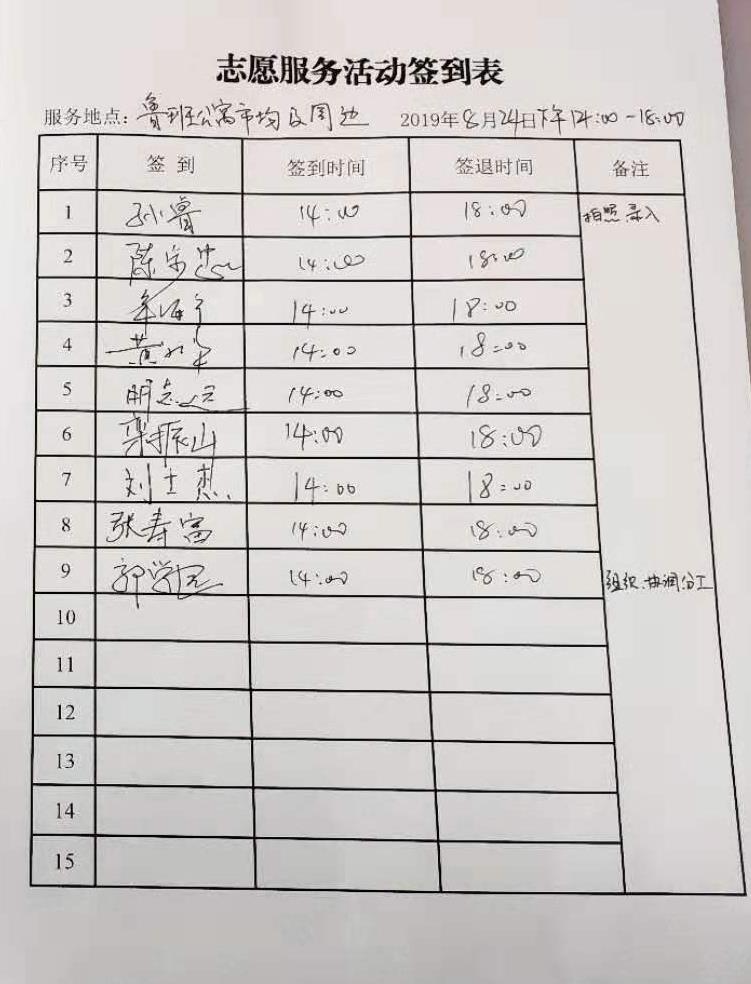 志愿服务活动签到表
服务地点：鲁班公寓市均及周边 2019年8月24日下午14:00-18:00
序号 签到 签到时间 签退时间 备注
1 孙鲁 14:00 18:00 拍照录入
2 陈宗忠 14:00 18:00
3 14:00 18:00
4 黄 14:00 18:00
5 明志 14:00 18:00
6 栾振山 14:00 18:00
7 刘士杰 14:00 18:00
8 张寿富 14:00 18:00
9 郭学 14:00 18:00 组织、协调分工
10
11
12
13
14
15